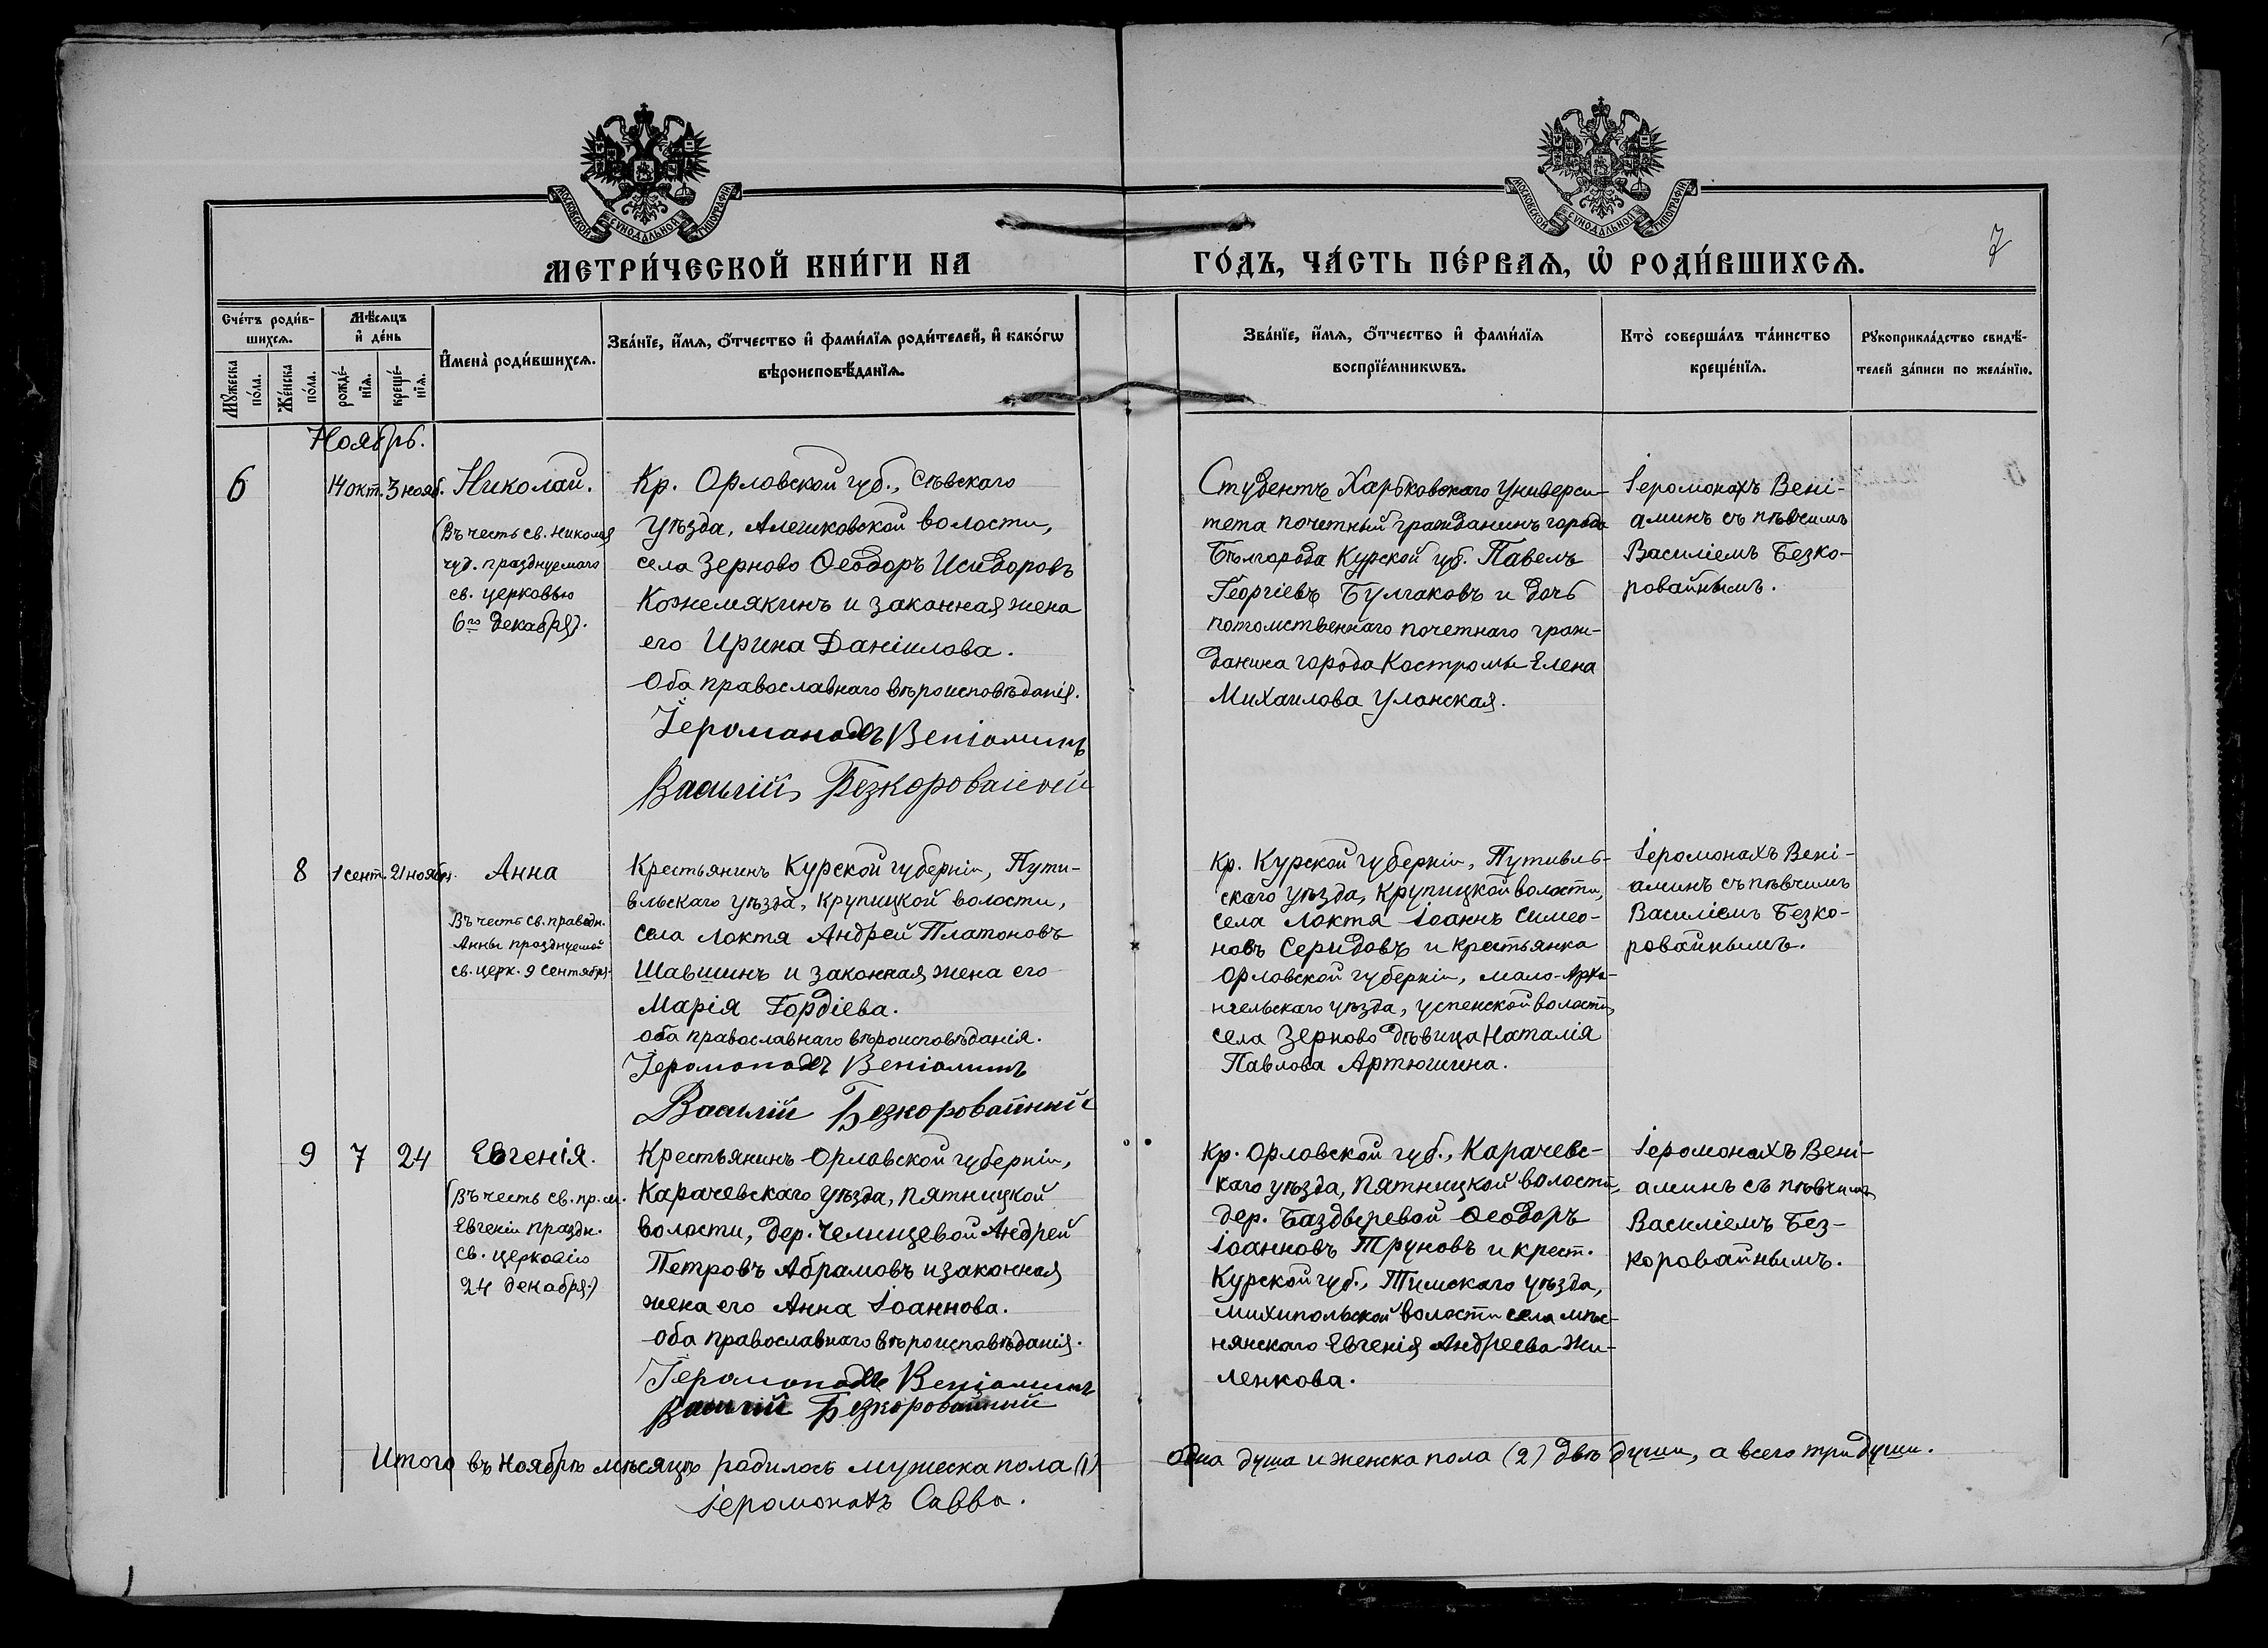 МОСКОВСКОЙ СѴНОДАЛЬНОЙ ТИПОГРАФІИ
МОСКОВСКОЙ СѴНОДАЛЬНОЙ ТИПОГРАФІИ
7
МЕТРИ́ЧЕСКОЙ КНИ́ГИ НА
ГО́ДЪ, ЧА́СТЬ ПЕ́РВАѦ, Ѡ҆ РОДИ́ВШИХСѦ.
Сче́тъ роди́в-
шихсѧ.
Мѹ́жеска
по́ла.
Же́нска
по́ла.
Мѣ́сѧцъ
и҆ де́нь
рожде́-
нїѧ.
креще́-
нїѧ.
И҆мена̀ роди́вшихсѧ.
Зва́нїе, и҆́мѧ, о҆́тчество и҆ фами́лїѧ роди́телей, и҆ како́гѡ
вѣроисповѣ́данїѧ.
Зва́нїе, и҆́мѧ, о҆́тчество и҆ фами́лїѧ
воспрїе́мникѡвъ.
Кто̀ соверша́лъ та́инство
креще́нїѧ.
Рѹкоприкла́дство свидѣ́-
телей за́писи по жела́нїю.
Ноябрь.
6
14 окт.
3 нояб.
Николай.
(Въ честь св. Николая
чуд. празднуемаго
св. церковью
6го декабря).
Кр. Орловской губ., Сѣвскаго
уѣзда, Алешковской волости,
села Зерново Ѳеодоръ Исидоровъ
Кожемякинъ и законная жена
его Ирина Даніилова.
Оба православнаго вѣроисповѣданія.
Іеромонахъ Веніаминъ
Василій Безкоровайный
Студентъ Харьковскаго универси-
тета почетный гражданинъ города
Бѣлгорода Курской губ. Павелъ
Георгіевъ Булгаковъ и дочь
потомственнаго почетнаго граж-
данина города Костромы Елена
Михаилова Уланская.
Іеромонахъ Вені-
аминъ съ пѣвчимъ
Василіемъ Безко-
ровайнымъ.
8
1 сент.
21 ноября.
Анна
Въ честь св. праведн.
Анны празднуемой
св. церк. 9 сентября.
Крестьянинъ Курской губерніи, Пути-
вльскаго уѣзда, Крупицкой волости,
села Локтя Андрей Платоновъ
Шавшинъ и законная жена его
Марія Гордіева.
оба православнаго вѣроисповѣданія.
Іеромонахъ Веніаминъ
Василій Безкоровайный
Кр. Курской губерніи, Путивль-
скаго уѣзда, Крупицкой волости,
села Локтя Іоаннъ Симео-
новъ Середовъ и крестьянка
Орловской губерніи, мало-Арха-
нгельскаго уѣзда, успенской волости,
села Зерново дѣвица Наталія
Павлова Артюшина.
Іеромонахъ Вені-
аминъ съ пѣвчимъ
Василіемъ Безко-
ровайнымъ.
9
7
24
Евгенія.
(Въ честь св. пр. м.
Евгеніи праздн.
св. церковію
24 декабря)
Крестьянинъ Орловской губерніи,
Карачевскаго уѣзда, Пятницкой
волости, дер. Челищевой Андрей
Петровъ Абрамовъ и законная
жена его Анна Іоаннова.
Оба православнаго вѣроисповѣданія.
Іеромонахъ Веніаминъ
Василій Безкоровайный
Кр. Орловской губ., Карачевс-
каго уѣзда, Пятницкой волости,
дер. Баздыревой Ѳеодоръ
Іоанновъ Труновъ и крест.
Курской губ., Тимскаго уѣзда,
волости села
Евгенія Андреева Жи-
ленкова.
Іеромонахъ Вені-
аминъ съ пѣвчимъ
Василіемъ Без-
коровайнымъ.
Итого въ ноябрѣ мѣсяцѣ родилось мужеска пола (1)
одна душа и женска пола (2) двѣ души, а всего три души.
Іеромонахъ Савва.